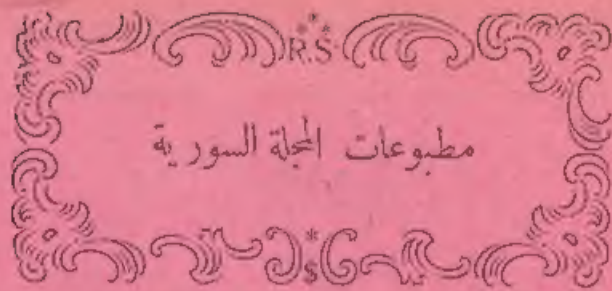 R.S
مطبوعات المجلة السورية